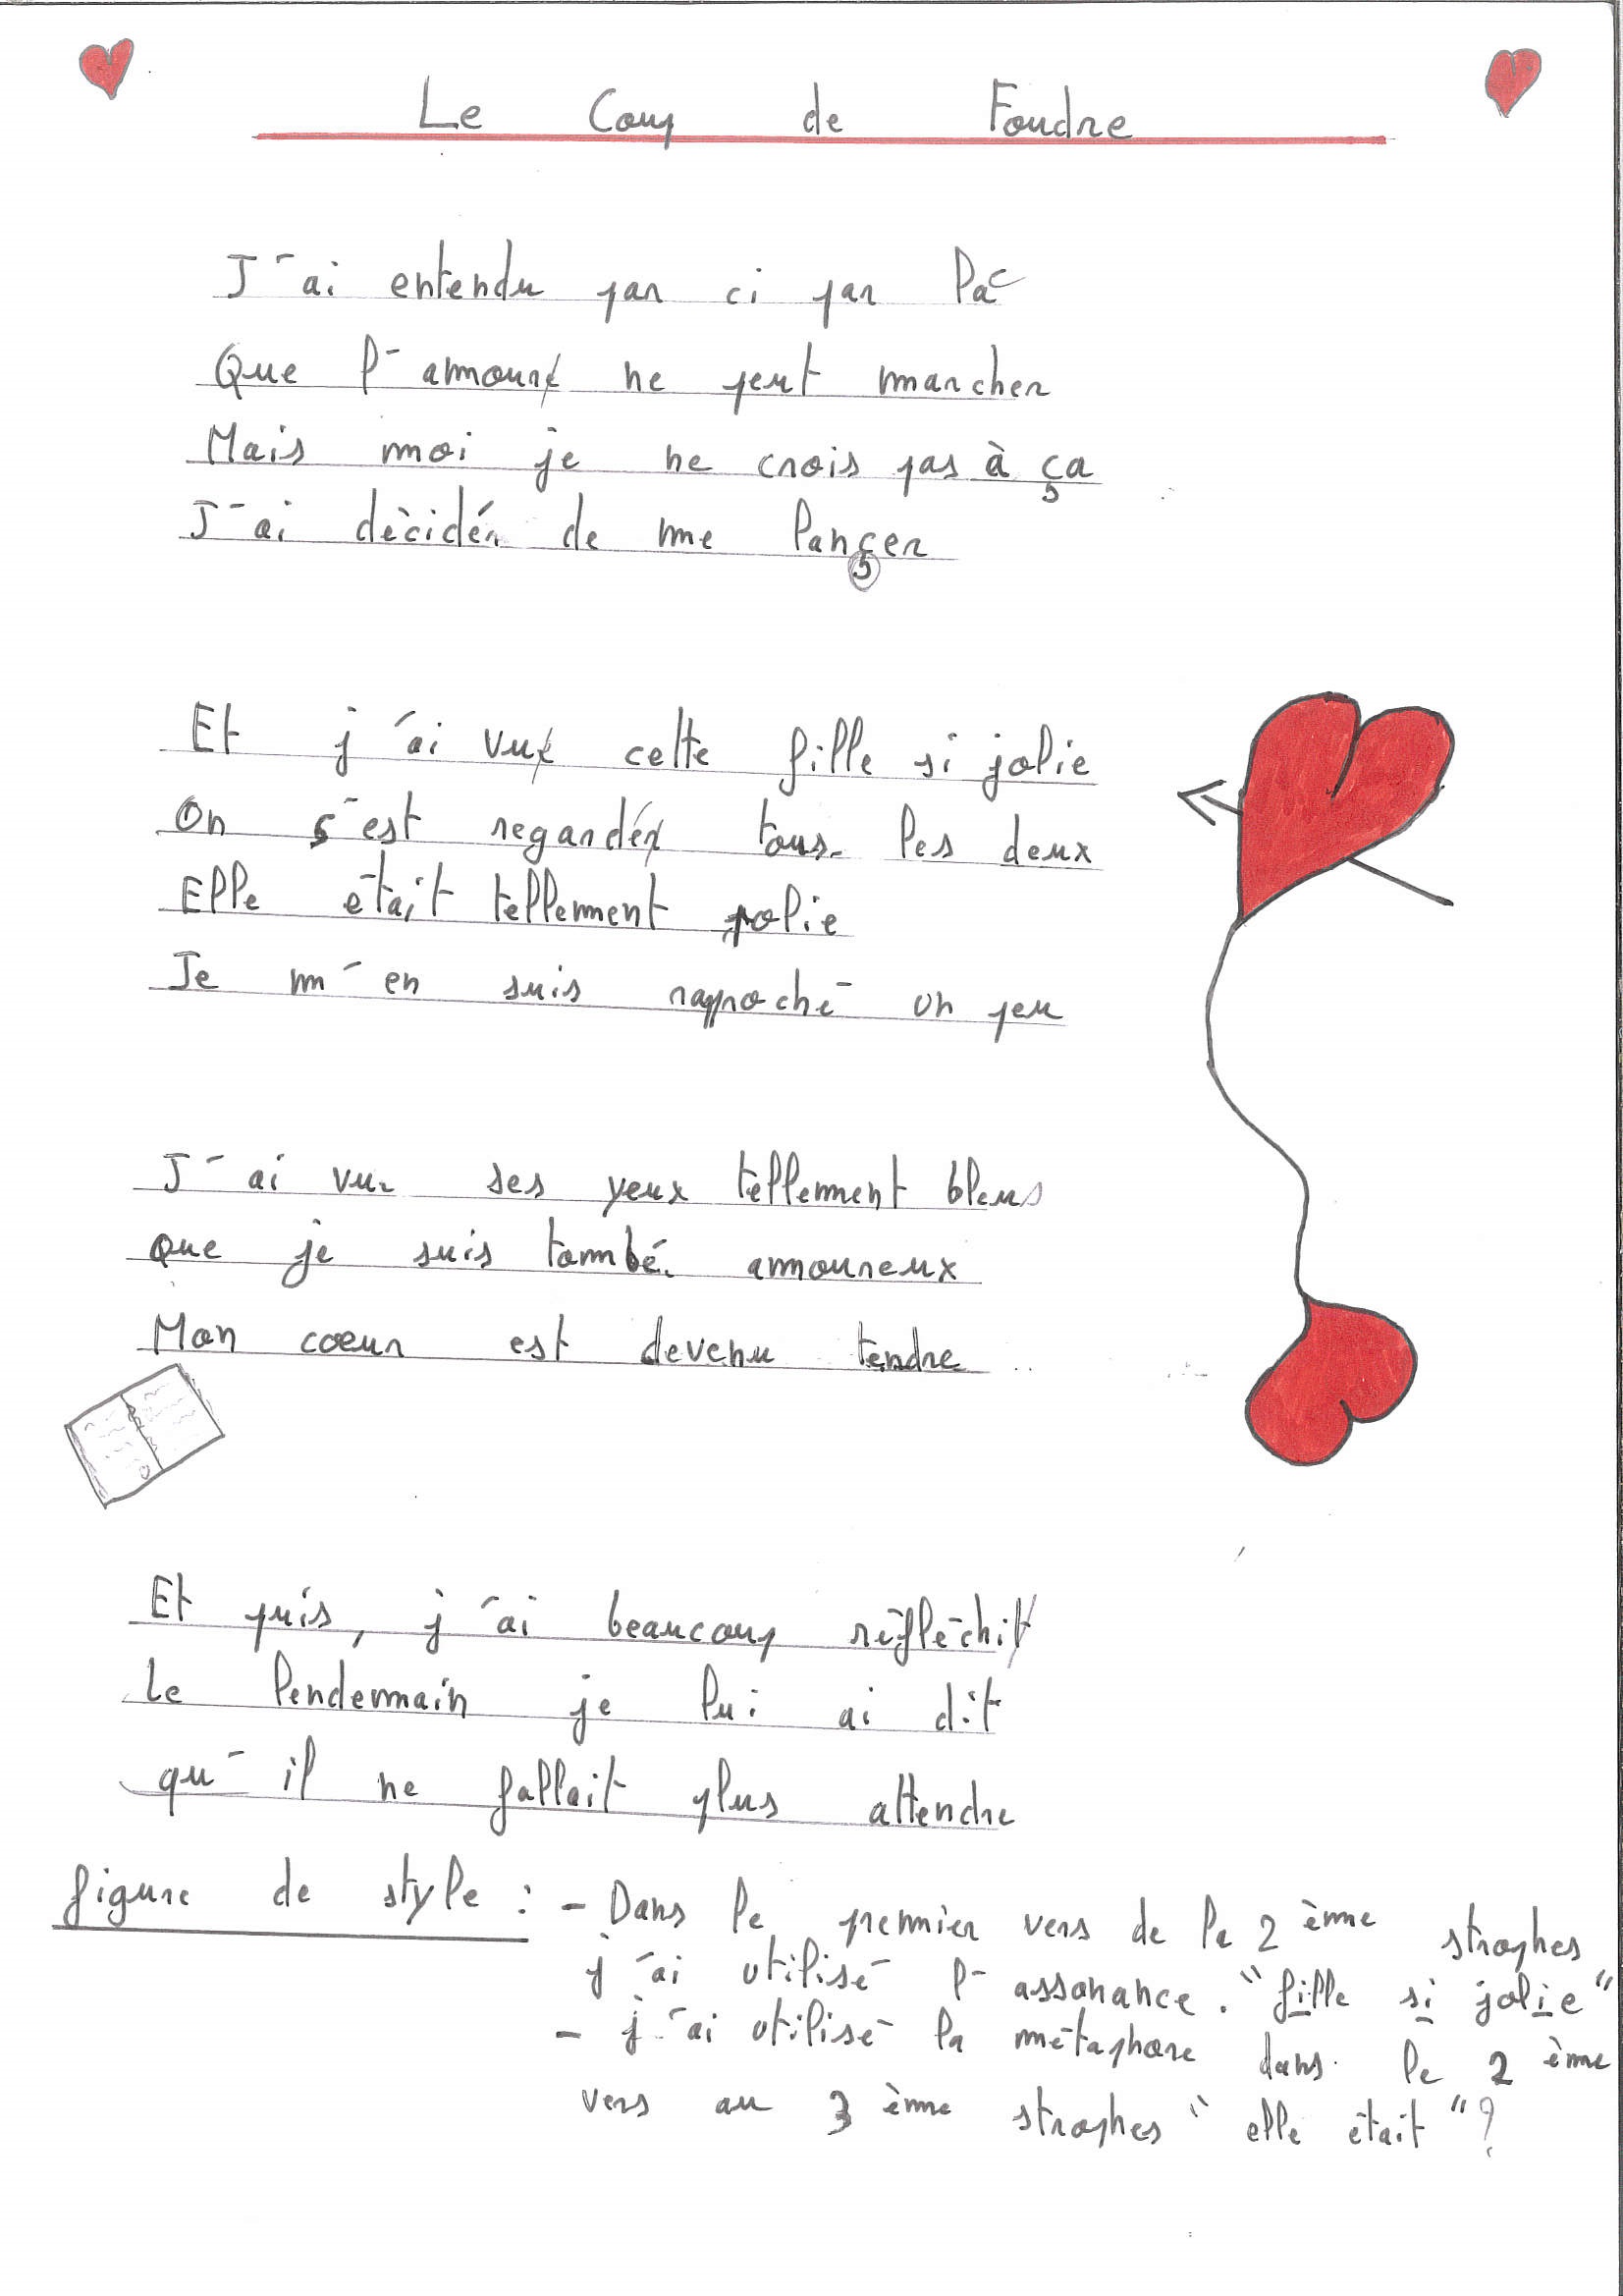 Le Coup de Foudre
J'ai entendu par ci par là
Que l'amour ne peut marcher
Mais moi je ne crois pas à ça
J'ai décidé de me lançer
Et j'ai vu cette fille si jolie
On s'est regardé tous les deux
Elle était tellement polie
Je m'en suis rapproché un peu
J'ai vu ses yeux tellement bleus
Que je suis tombé amoureux
Mon coeur est devenu tendre
Et puis, j'ai beaucoup réfléchi
Le lendemain je lui ai dit
qu'il ne fallait plus attendre
figure de style : - Dans le premier vers de le 2 ème strophes
j'ai utilisé l'assonance. "fille si jolie"
- j'ai utilisé la métaphore dans le 2 ème
vers au 3 ème strophes "elle était" ?